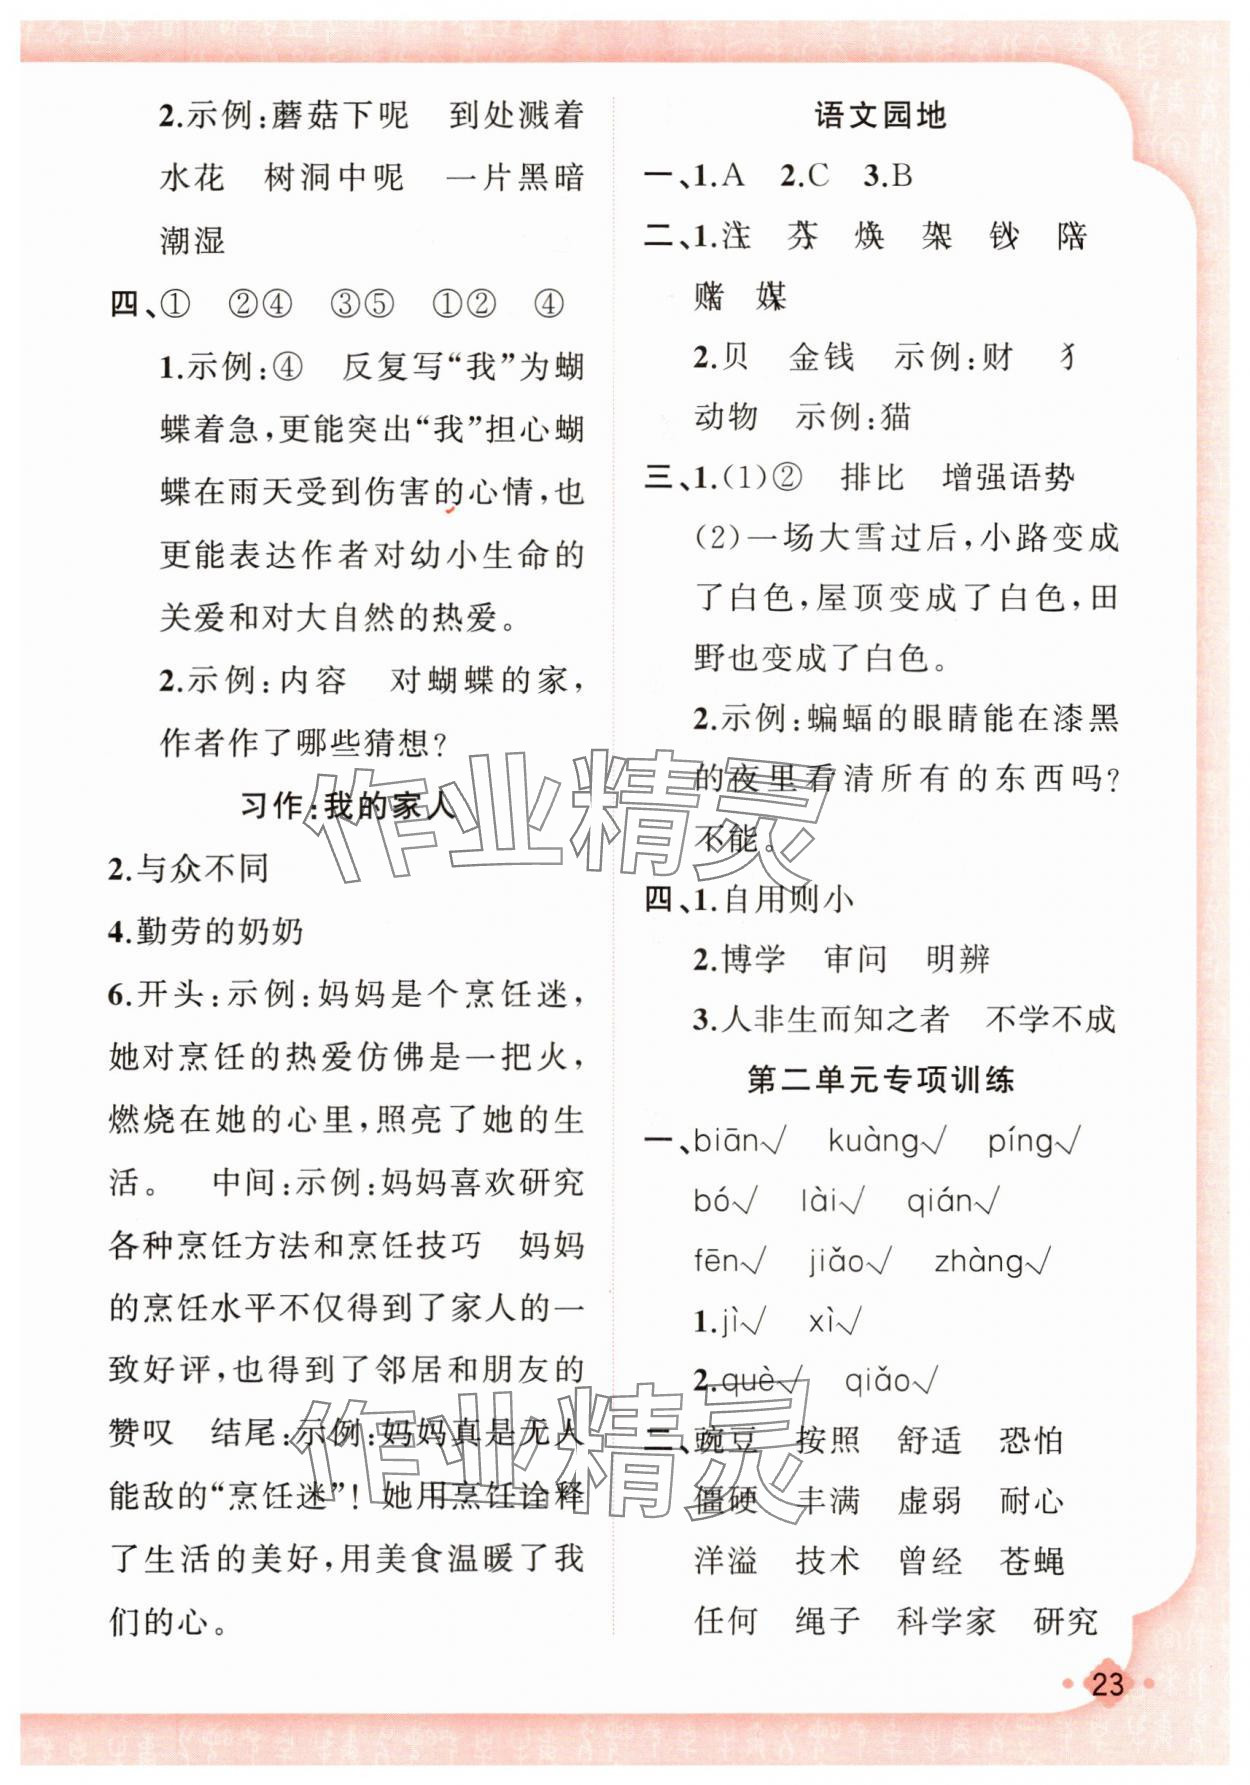 2.示例:蘑菇下呢 到处溅着
水花 树洞中呢 一片黑暗
潮湿
四、① ②④ ③⑤ ①② ④
1.示例:④ 反复写“我”为蝴
蝶着急,更能突出“我”担心蝴
蝶在雨天受到伤害的心情,也
更能表达作者对幼小生命的
关爱和对大自然的热爱。
2.示例:内容 对蝴蝶的家,
作者作了哪些猜想?
习作:我的家人
2.与众不同
4.勤劳的奶奶
6.开头:示例:妈妈是个烹饪迷,
她对烹饪的热爱仿佛是一把火,
燃烧在她的心里,照亮了她的生
活。 中间:示例:妈妈喜欢研究
各种烹饪方法和烹饪技巧 妈妈
的烹饪水平不仅得到了家人的一
致好评,也得到了邻居和朋友的
赞叹 结尾:示例:妈妈真是无人
能敌的“烹饪迷”! 她用烹饪诠释
了生活的美好,用美食温暖了我
们的心。
语文园地
一、1.A 2.C 3.B
二、1.注 芬 焕 架 钞 陪
赌 媒
2.贝 金钱 示例:财 犭
动物 示例:猫
三、1.(1)② 排比 增强语势
(2)一场大雪过后,小路变成
了白色,屋顶变成了白色,田
野也变成了白色。
2.示例:蝙蝠的眼睛能在漆黑
的夜里看清所有的东西吗?
不能。
四、1.自用则小
2.博学 审问 明辨
3.人非生而知之者 不学不成
第二单元专项训练
一、biān√ kuàng√ píng√
bó√ lài√ qián√
fēn√ jiǎo√ zhàng√
1.jì√ xì√
2.què√ qiǎo√
二、豌豆 按照 舒适 恐怕
僵硬 丰满 虚弱 耐心
洋溢 技术 曾经 苍蝇
任何 绳子 科学家 研究
23
作业精灵
作业精灵